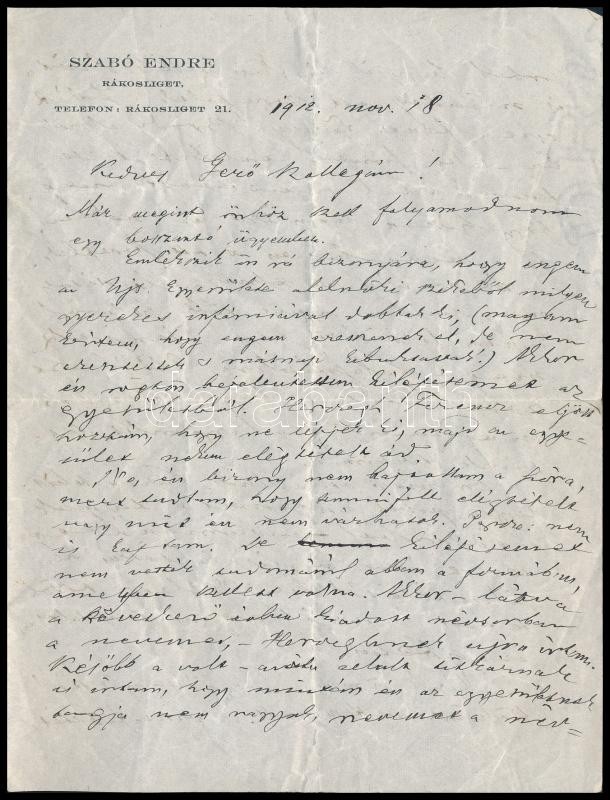 SZABÓ ENDRE
RÁKOSLIGET.
TELEFON: RÁKOSLIGET 21.
1912. nov. 18
Kedves Gerő kollegám!
Már megint önhöz kell folyamodnom
egy bosszantó ügyemben.
Emlékszik ön rá bizonyára, hogy engem
az Ujs. Egyesülete alelnöki székéből milyen
infámiával dobtak ki, (magam
kértem, hogy engem eresszenek el, de nem
eresztettek s másnap kibuktattak!) Akkor
én rögtön bejelentettem kilépésemet az
egyesületből. Herczegh Ferencz eljött
hozzám, hogy ne lépjek ki, majd az egye-
sület nekem elégtételt ád.
No, én bizony nem hajtottam a szóra,
mert tudtam, hogy semmiféle elégtételt
vagy mit én nem várhatok. Persze: nem
is kaptam. De kilépésemet
nem vették tudomásul abban a formában,
amelyben kellett volna. Akkor – látva
a következő évben kiadott névsorban
a nevemet, – Herceghnek ujra írtam.
Később a volt titkárnak
is írtam, hogy miután én az egyesületnek
tagja nem vagyok, nevemet a név-
darabanth